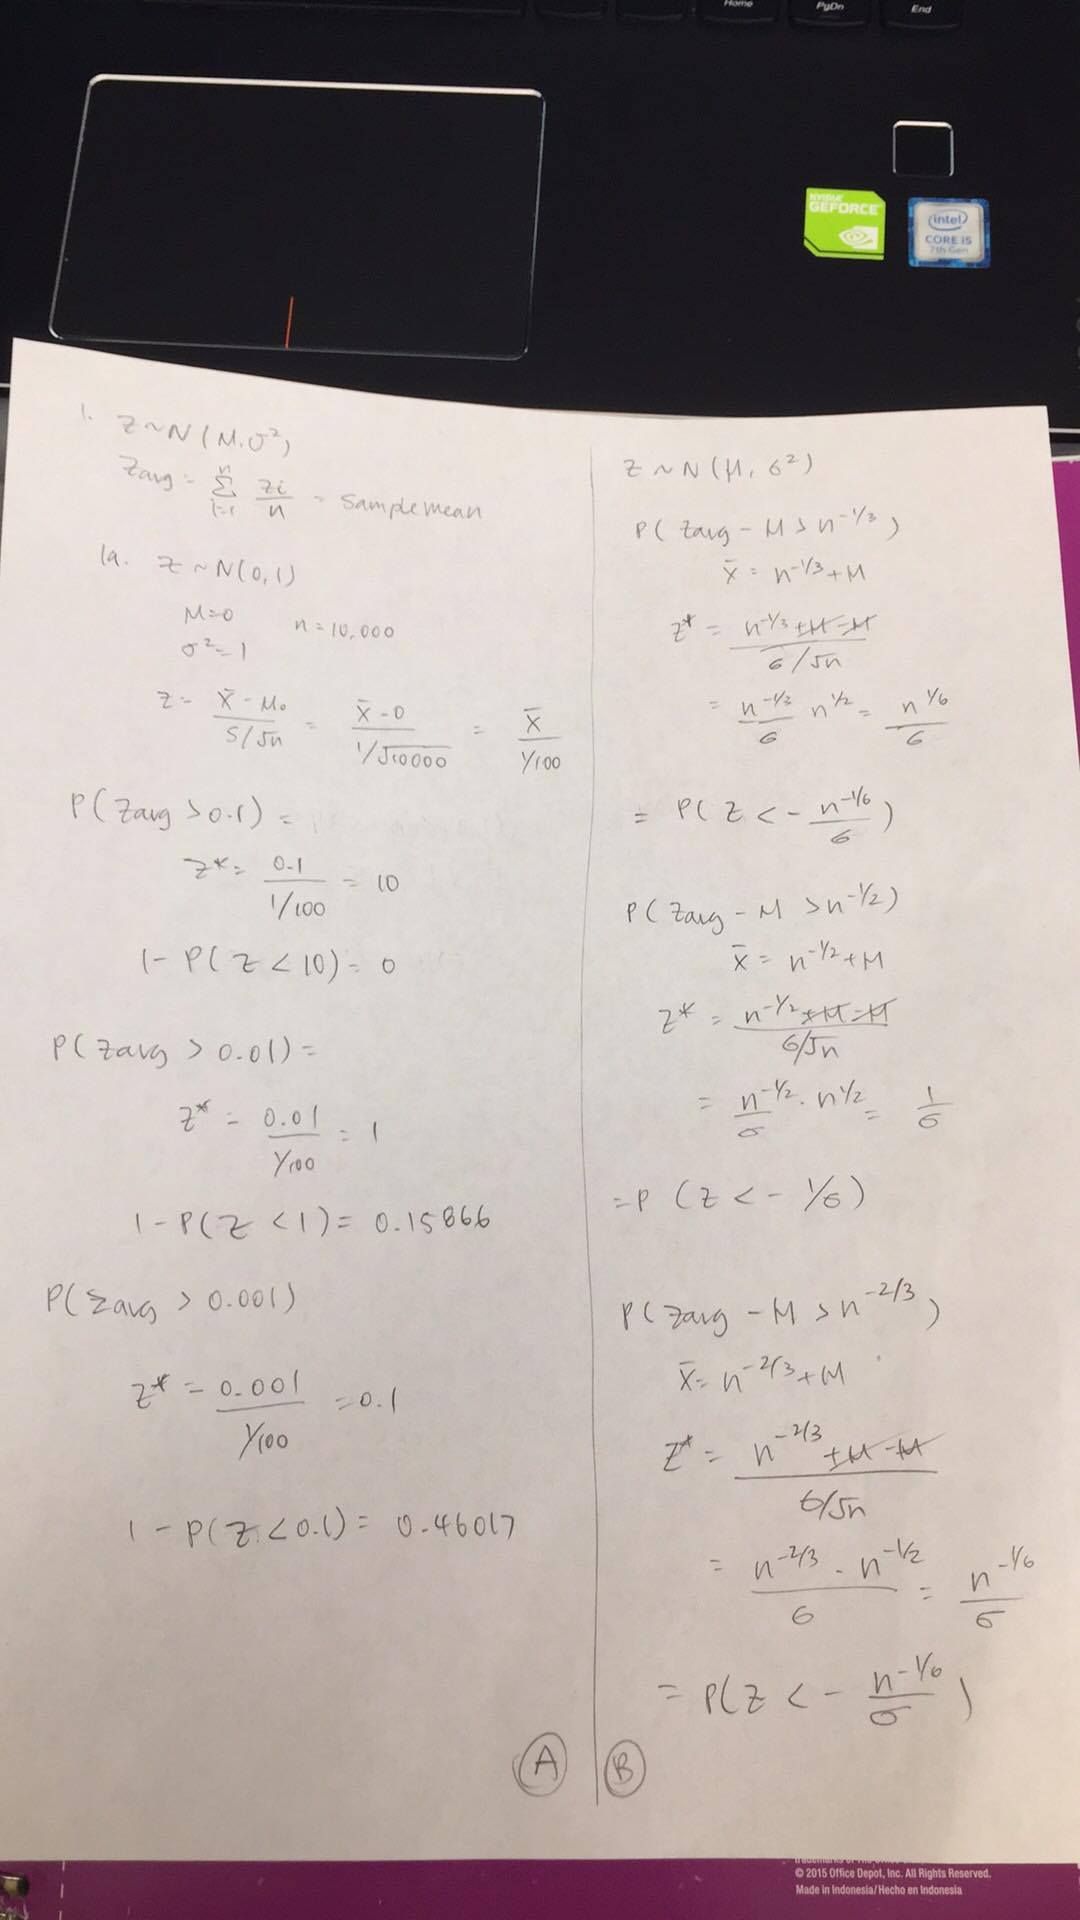 Home
PgDn
End
NVIDIA
GEFORCE
intel
CORE i5
7th Gen
1. Z ~ N(M, σ²)
Zavg = n Σ i=1 zi/n = Sample mean
1a. Z ~ N(0, 1)
M=0 n = 10,000
σ² = 1
Z = (x̄ - M₀)/(S/√n) = (x̄ - 0)/(1/√10000) = x̄/(1/100)
P(Zavg > 0.1) =
Z* = 0.1/(1/100) = 10
1 - P(Z < 10) = 0
P(Zavg > 0.01) =
Z* = 0.01/(1/100) = 1
1 - P(Z < 1) = 0.15866
P(Zavg > 0.001)
Z* = 0.001/(1/100) = 0.1
1 - P(Z < 0.1) = 0.46017
A
Z ~ N(M, 6²)
P(Zavg - M > n^-1/3)
x̄ = n^-1/3 + M
Z* = (n^-1/3 + M - M)/(6/√n)
= n^-1/3/6 n^1/2 = n^1/6/6
= P(Z < - n^-1/6/6)
P(Zavg - M > n^-1/2)
x̄ = n^-1/2 + M
Z* = (n^-1/2 + M - M)/(6/√n)
= n^-1/2/σ · n^1/2 = 1/6
= P(Z < - 1/6)
P(Zavg - M > n^-2/3)
x̄ = n^-2/3 + M
Z* = (n^-2/3 + M - M)/(6/√n)
= (n^-2/3 - n^-1/2)/6 = n^-1/6/σ
= P(Z < - n^-1/6/σ)
B
© 2015 Office Depot, Inc. All Rights Reserved.
Made in Indonesia/Hecho en Indonesia